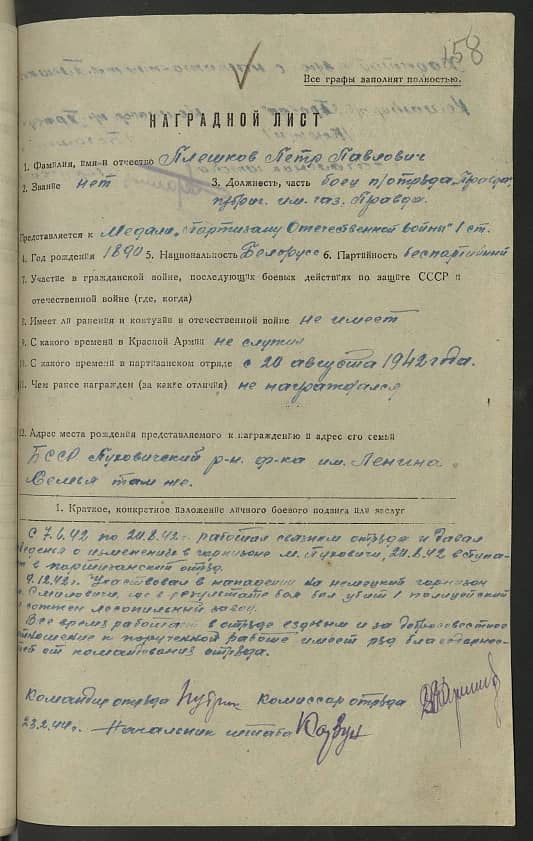 158
Все графы заполнят полностью.
НАГРАДНОЙ ЛИСТ
1. Фамилия, имя и отчество Плешков Пётр Павлович
2. Звание нет 3. Должность, часть боец п/отряда „Правда“
п/бриг. им. газ. Правда.
Представляется к Медали „Партизану Отечественной войны“ 1 ст.
4. Год рождения 1890 5. Национальность Белорусс 6. Партийность беспартийный
7. Участие в гражданской войне, последующих боевых действиях по защите СССР и
отечественной войне (где, когда)
8. Имеет ли ранения и контузии в отечественной войне не имеет
9. С какого времени в Красной Армии не служил
10. С какого времени в партизанском отряде с 20 августа 1942 года.
11. Чем ранее награжден (за какие отличия) не награждался
12. Адрес места рождения представляемого к награждению и адрес его семьи
БССР Пуховичский р-н. ф-ка им. Ленина.
Семья там же.
1. Краткое, конкретное изложение личного боевого подвига или заслуг
С 7.6.42 по 20.8.42 г. работал связным отряда и давал
сведения о изменениях в гарнизоне м. Пуховичи, 20.8.42 вступа-
ет в партизанский отряд.
9.12.42 г. Участвовал в нападении на немецкий гарнизон
м. Смиловичи, где в результате боя был убит 1 полицейский
и сожжен лесопильный завод.
Все время работает в отряде ездовым и за добросовестное
отношение к порученной работе имеет ряд благодарно-
стей от командования отряда.
Командир отряда комиссар отряда
23.2.44 г. Начальник штаба